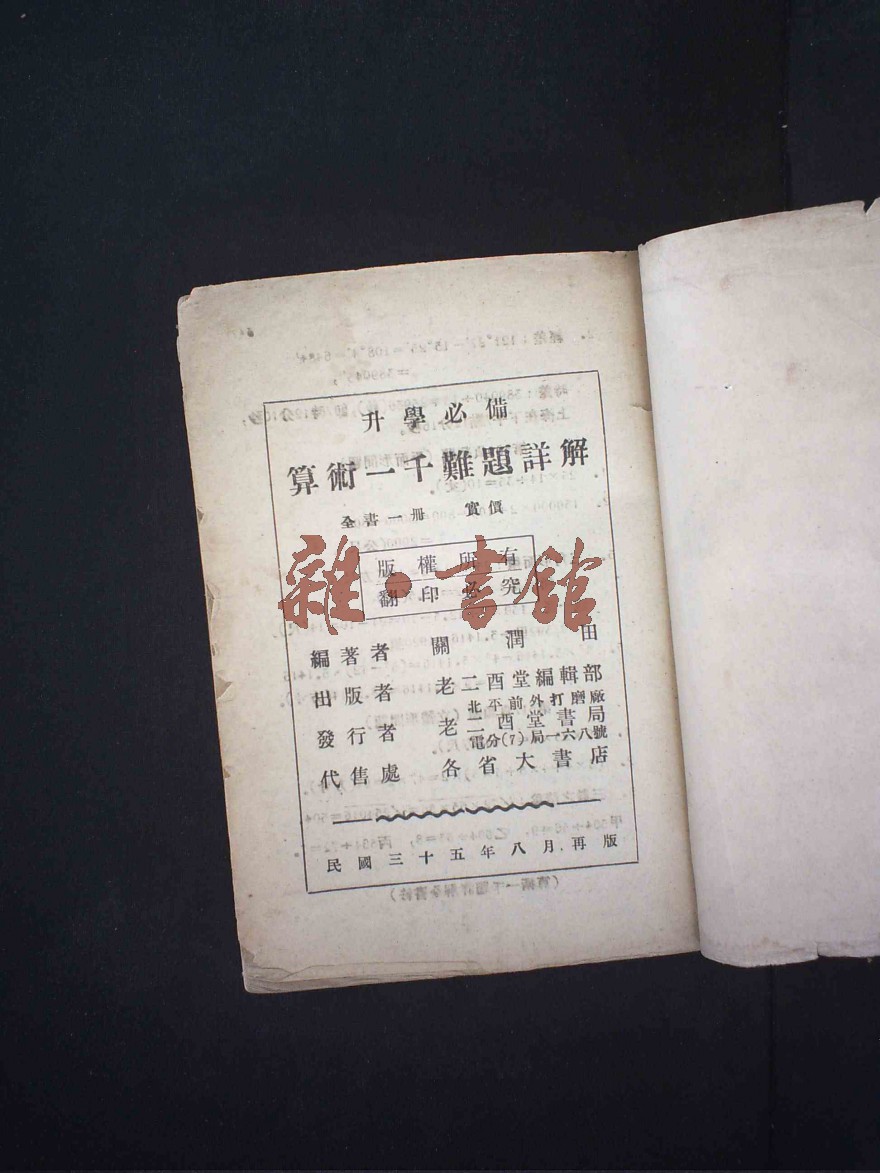 升學必備
算術一千難題詳解
全書一冊 實價
版權所有
翻印必究
雜·書館
編著者 關潤田
出版者 老二酉堂編輯部
北平前外打磨廠
發行者 老二酉堂書局
電分(7)局一六八號
代售處 各省大書店
民國三十五年八月再版